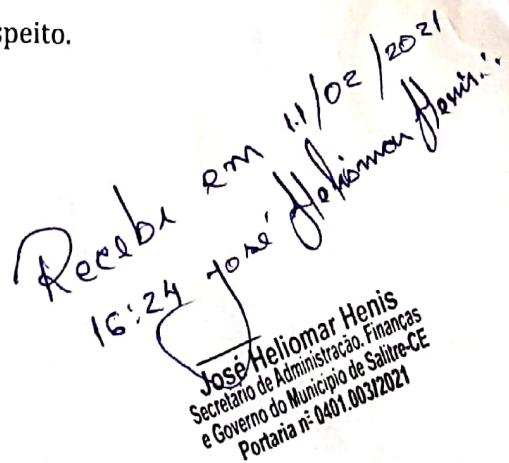 speito.
Recebi em 11/02/2021
16:24 José Heliomar Henis
José Heliomar Henis
Secretário de Administração. Finanças
e Governo do Município de Salitre-CE
Portaria nº 0401.003/2021